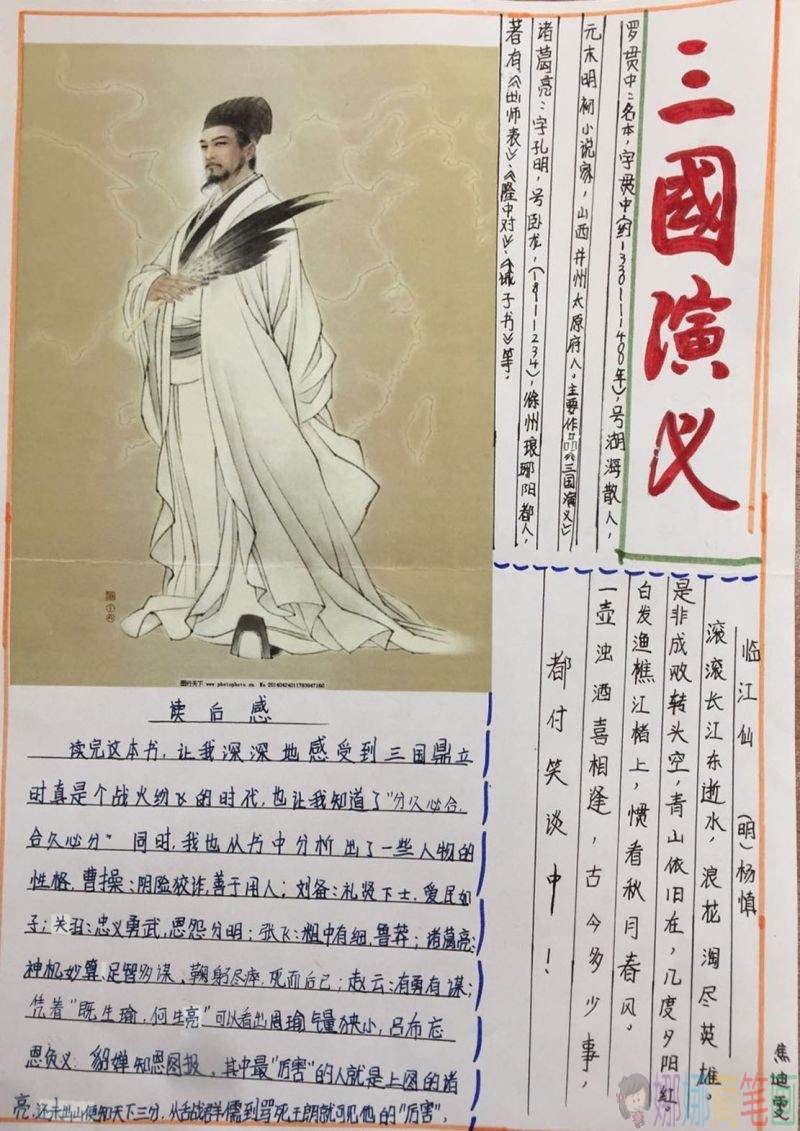 三國演义
罗贯中:名本,字贯中(约1330—1400年),号湖海散人,
元末明初小说家,山西并州太原府人。主要作品《三国演义》
诸葛亮:字孔明,号卧龙,(181—234),徐州琅琊阳都人,
著有《出师表》、《隆中对》、《诫子书》等。
临江仙 (明)杨慎
滚滚长江东逝水,浪花淘尽英雄。
是非成败转头空,青山依旧在,几度夕阳红。
白发渔樵江楮上,惯看秋月春风。
一壶浊酒喜相逢,古今多少事,
都付笑谈中!
读后感
读完这本书,让我深深地感受到三国鼎立
时真是个战火纷飞的时代,也让我知道了“分久必合,
合久必分”同时,我也从书中分析出了一些人物的
性格,曹操:阴险狡诈,善于用人;刘备:礼贤下士,爱民如
子;关羽:忠义勇武,恩怨分明;张飞:粗中有细,鲁莽;诸葛亮:
神机妙算,足智多谋、鞠躬尽瘁,死而后已;赵云:有勇有谋;
凭着“既生瑜,何生亮”可以看出周瑜气量狭小,吕布忘
恩负义;貂婵知恩图报,其中最“厉害”的人就是上图的诸
亮,还未出山便知天下三分,从舌战群儒到骂死王朗就可见他的“厉害”,
图行天下 www.photophoto.cn No.20140424011783947160
焦迪雯
娜娜简笔画